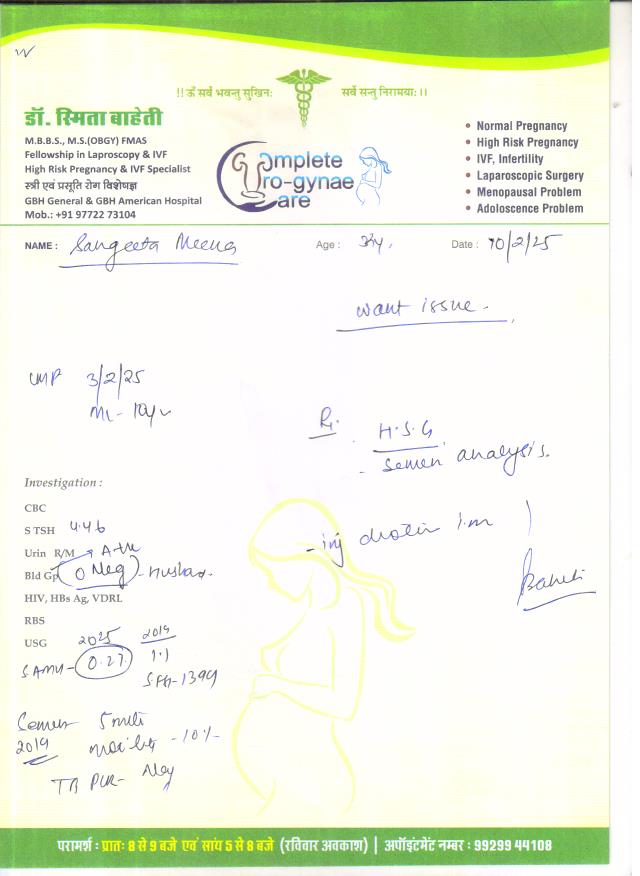 !! ॐ सर्वे भवन्तु सुखिनः सर्वे सन्तु निरामयाः ।।
डॉ. स्मिता बाहेती
M.B.B.S., M.S.(OBGY) FMAS
Fellowship in Laproscopy & IVF
High Risk Pregnancy & IVF Specialist
स्त्री एवं प्रसूति रोग विशेषज्ञ
GBH General & GBH American Hospital
Mob.: +91 97722 73104
Complete
Uro-gynae
Care
• Normal Pregnancy
• High Risk Pregnancy
• IVF, Infertility
• Laparoscopic Surgery
• Menopausal Problem
• Adoloscence Problem
NAME : Sangeeta Meena Age : Date : 10/2/25
want issue -
LMP 3/2/25
ML - 10yr
H.S.G
- Semen analysis.
- inj drotin i.m
Investigation :
CBC
S TSH 4.46
Urin R/M
Bld Gp O Neg
HIV, HBs Ag, VDRL
RBS
USG 2025 2019
S AMH - 0.27 1.1
Semen 5 mill
2019 motility - 10%
TB PCR - Neg
परामर्श : प्रातः 8 से 9 बजे एवं सांय 5 से 8 बजे (रविवार अवकाश) | अपॉइंटमेंट नम्बर : 99299 44108